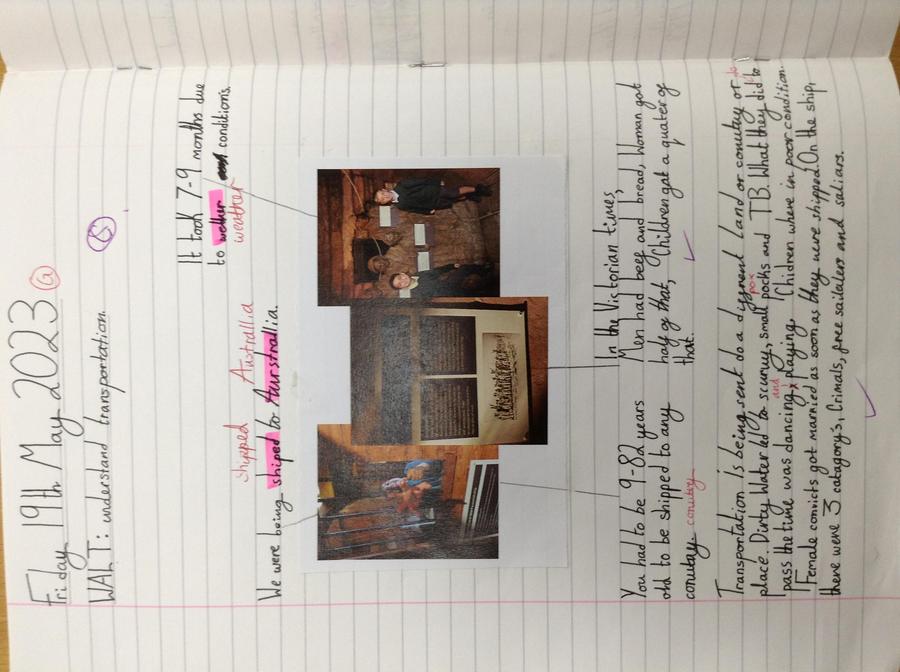 Friday 19th May 2023 G
WALT: understand transportation.
It took 7-9 months due
to wether conditions.
weather
shipped Australlia
We were being shiped to Aurstrallia.
You had to be 9-82 years
old to be shipped to any
conutay. conutry
In the Victorian times,
Men had beef and bread, Woman got
half of that, Children get a quater of
that.
Transportation is being sent do a different land or conutry or to
place. Dirty Water led to scurvy, small pocks pox and TB. What they did to
pass the time was dancing and playing. Chidren where in poor condition.
Female convicts got married as soon as they were shipped. On the ship,
there were 3 catagory's, Crimals, free sailers and saliars.